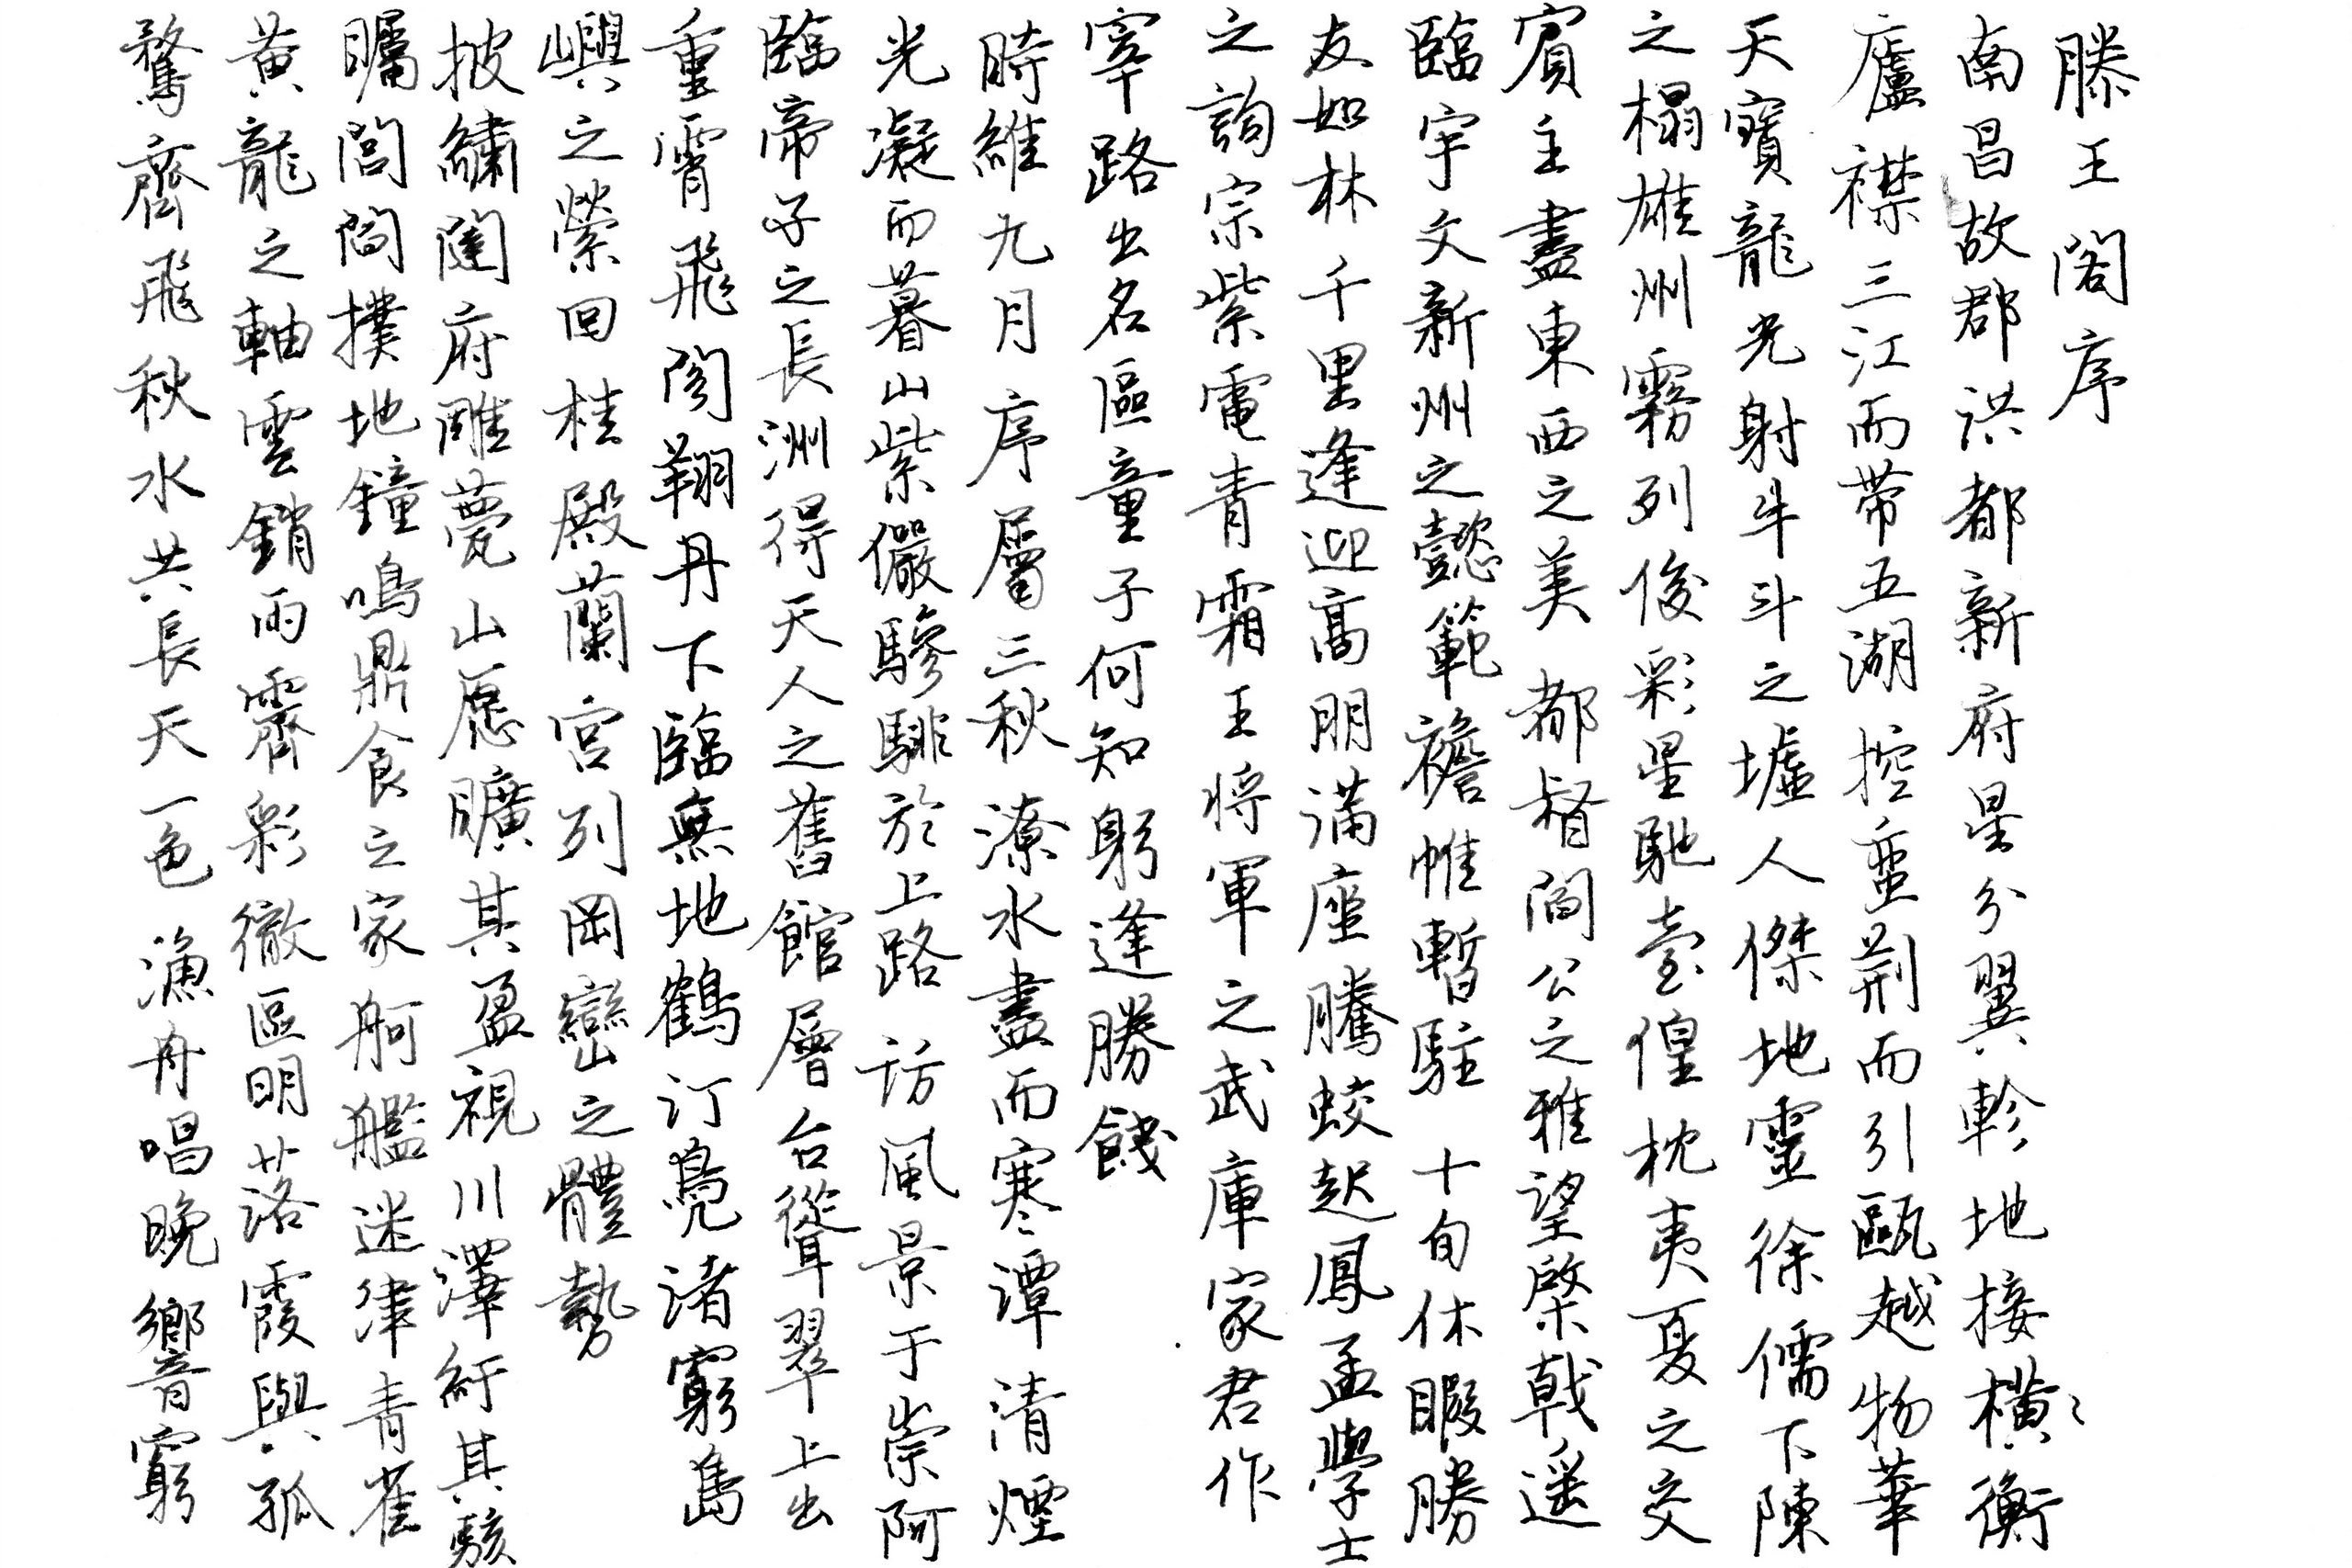 滕王閣序
南昌故郡洪都新府星分翼軫地接橫衡
廬襟三江而帶五湖控蛮荆而引甌越物華
天寶龍光射牛斗之墟人傑地靈徐儒下陳
之榻雄州霧列俊彩星馳臺隍枕夷夏之交
賓主盡東西之美都督閻公之雅望棨戟遥
臨宇文新州之懿範襜帷暫駐十旬休暇勝
友如林千里逢迎高朋满座騰蛟起鳳孟學士
之詞宗紫電青霜王将軍之武庫家君作
宰路出名區童子何知躬逢勝餞
時維九月序屬三秋潦水盡而寒潭清煙
光凝而暮山紫儼驂騑於上路访風景于崇阿
臨帝子之長洲得天人之舊館層台聳翠上出
重霄飛閣翔丹下臨無地鶴汀鳧渚窮島
嶼之縈回桂殿蘭宫列岡巒之體勢
披繡闥府雕甍山愿曠其盈視川澤紆其駭
矚閭閻撲地鐘鳴鼎食之家舸艦迷津青雀
黄龍之軸雲銷雨霽彩徹區明落霞與孤
鶩齊飛秋水共長天一色漁舟唱晚響窮